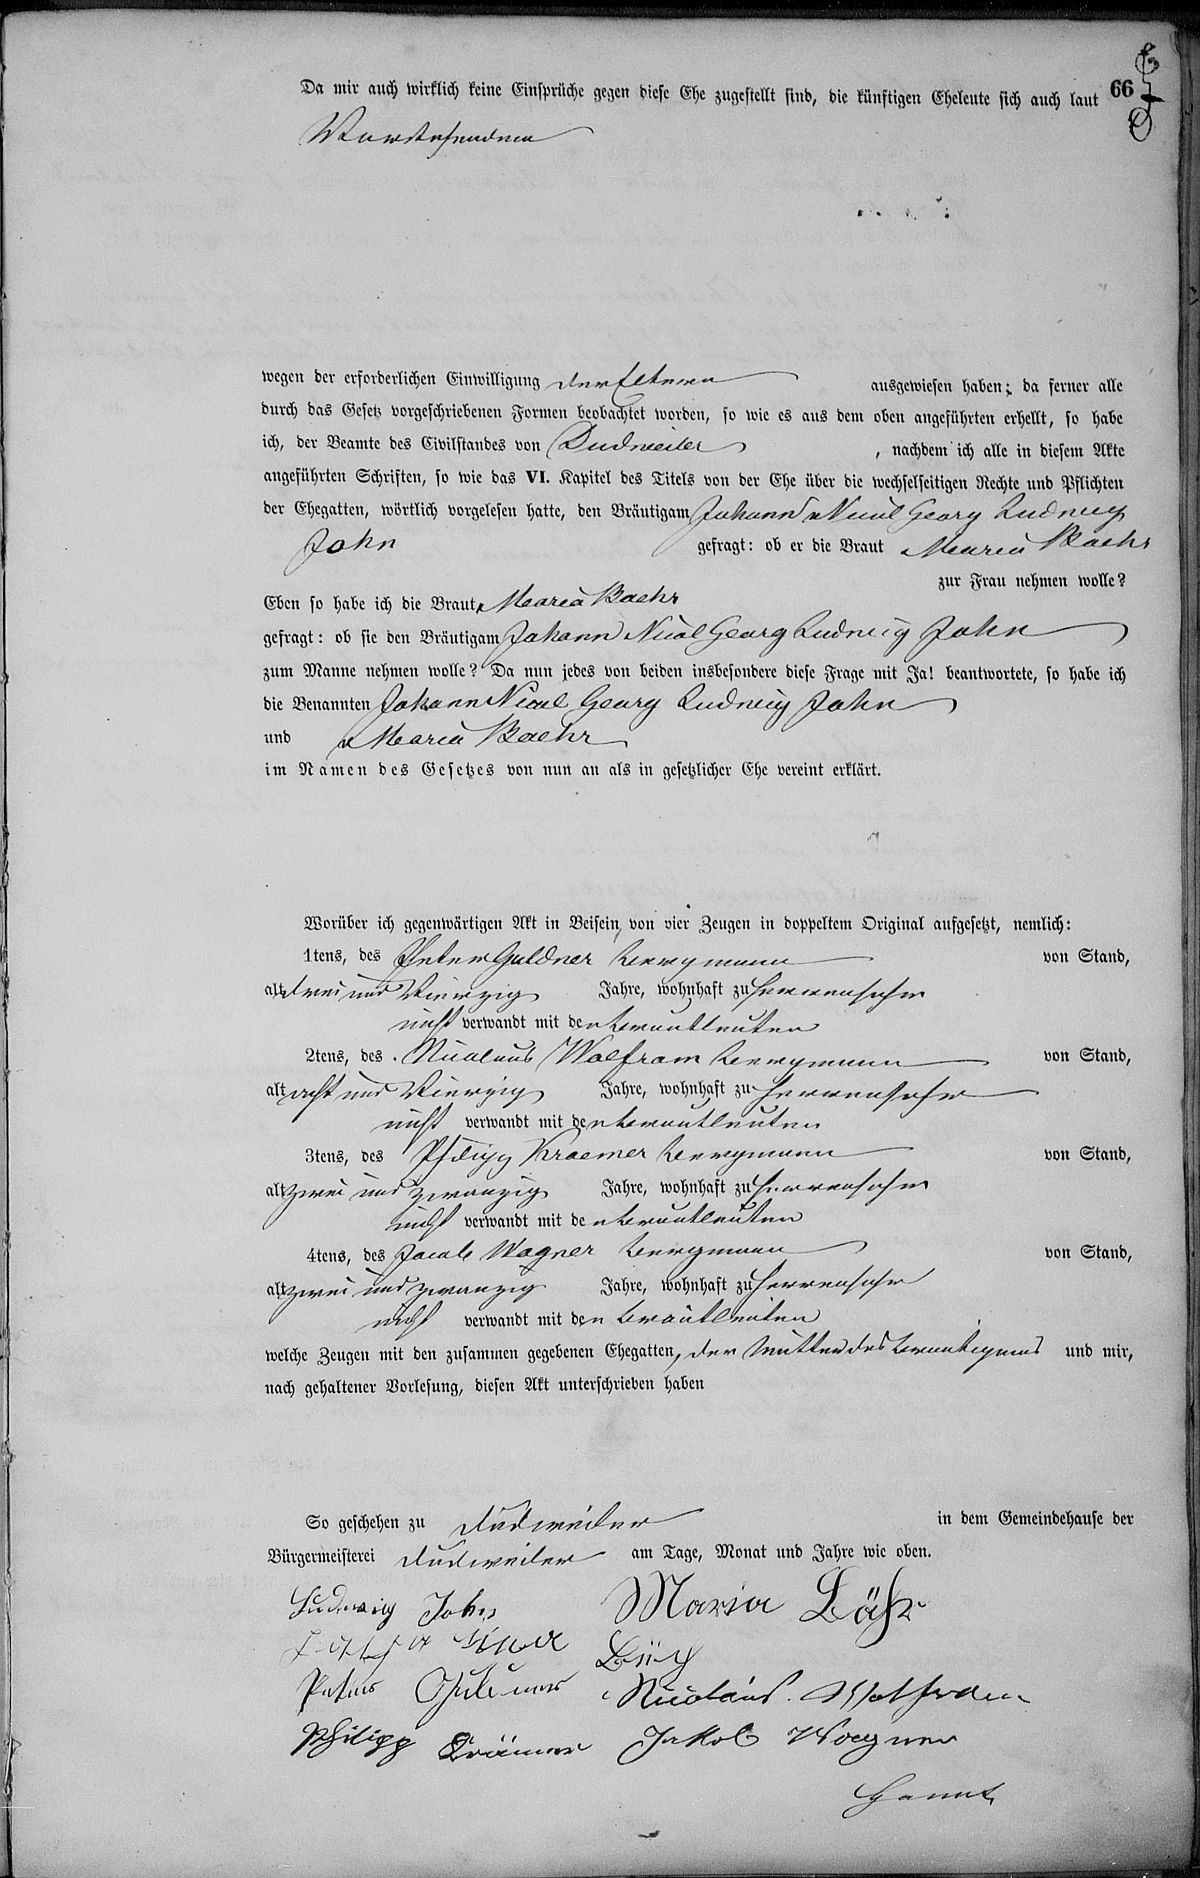 66
Da mir auch wirklich keine Einsprüche gegen diese Ehe zugestellt sind, die künftigen Eheleute sich auch laut
Vorstehendem
wegen der erforderlichen Einwilligung der Eltern ausgewiesen haben; da ferner alle
durch das Gesetz vorgeschriebenen Formen beobachtet worden, so wie es aus dem oben angeführten erhellt, so habe
ich, der Beamte des Civilstandes von Dudweiler, nachdem ich alle in diesem Akte
angeführten Schriften, so wie das VI. Kapitel des Titels von der Ehe über die wechselseitigen Rechte und Pflichten
der Ehegatten, wörtlich vorgelesen hatte, den Bräutigam Johann Nicol Georg Ludwig
John gefragt: ob er die Braut Maria Baehr
zur Frau nehmen wolle?
Eben so habe ich die Braut Maria Baehr
gefragt: ob sie den Bräutigam Johann Nicol Georg Ludwig John
zum Manne nehmen wolle? Da nun jedes von beiden insbesondere diese Frage mit Ja! beantwortete, so habe ich
die Benannten Johann Nicol Georg Ludwig John
und Maria Baehr
im Namen des Gesetzes von nun an als in gesetzlicher Ehe vereint erklärt.
Worüber ich gegenwärtigen Akt in Beisein von vier Zeugen in doppeltem Original aufgesetzt, nemlich:
1tens, des Peter Guldner Bergmann von Stand,
alt drei und vierzig Jahre, wohnhaft zu Herrensohr
nicht verwandt mit den Brautleuten
2tens, des Nicolaus Wolfram Bergmann von Stand,
alt acht und vierzig Jahre, wohnhaft zu Herrensohr
nicht verwandt mit den Brautleuten
3tens, des Philipp Kraemer Bergmann von Stand,
alt zwei und zwanzig Jahre, wohnhaft zu Herrensohr
nicht verwandt mit den Brautleuten
4tens, des Jacob Wagner Bergmann von Stand,
alt zwei und zwanzig Jahre, wohnhaft zu Herrensohr
nicht verwandt mit den Brautleuten
welche Zeugen mit den zusammen gegebenen Ehegatten, der Mutter des Bräutigams und mir,
nach gehaltener Vorlesung, diesen Akt unterschrieben haben
So geschehen zu Dudweiler in dem Gemeindehause der
Bürgermeisterei Dudweiler am Tage, Monat und Jahre wie oben.
Ludwig John Maria Bähr
Peter Guldner Nicolaus Wolfram
Philipp Krämer Jakob Wagner